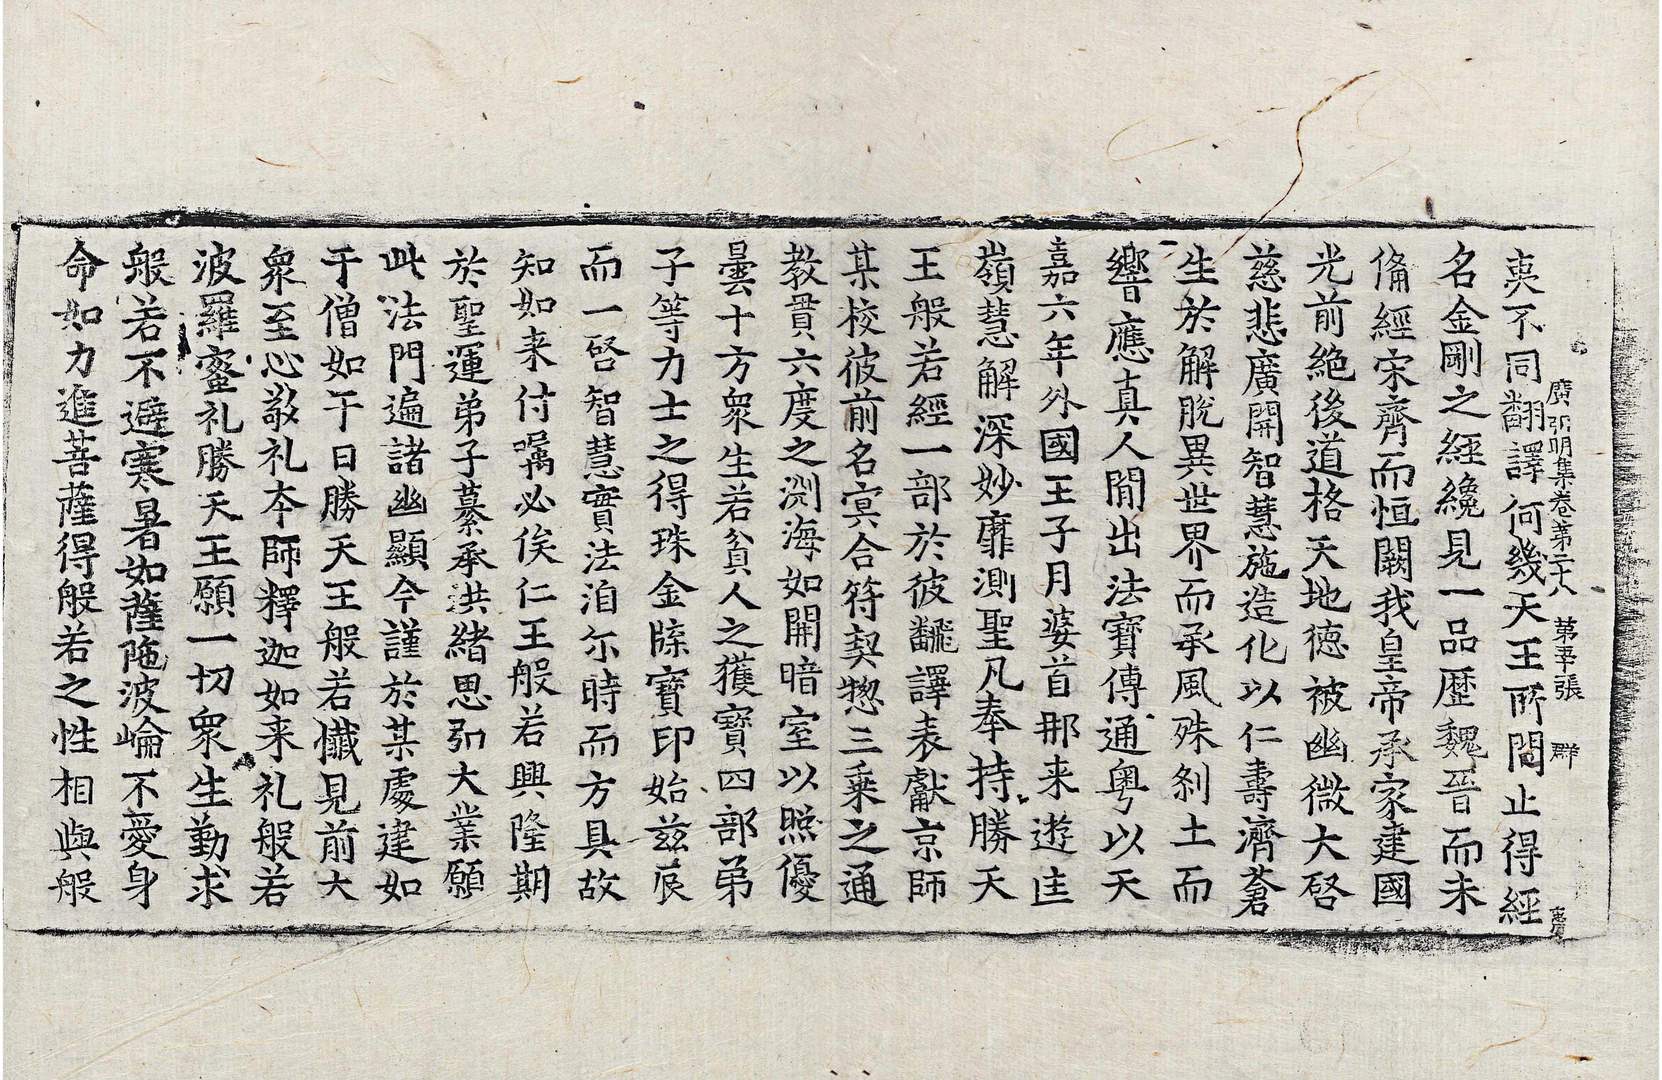 廣弘明集卷第二十八 第五張 群
夷不同翻譯何幾天王所問止得經
名金剛之經纔見一品歷魏晉而未
俻經宋齊而恒闕我皇帝承家建國
光前絶後道格天地德被幽微大啓
慈悲廣開智慧施造化以仁壽濟蒼
生於解脫異世界而承風殊刹土而
響應真人閒出法寶傳通粤以天
嘉六年外國王子月婆首那来遊匡
嶺慧解深妙靡測聖凡奉持勝天
王般若經一部於彼飜譯表獻京師
某校彼前名冥合符契惣三乗之通
教貫六度之渕海如開暗室以照優
曇十方衆生若貧人之獲寶四部弟
子等力士之得珠金牒寶印始茲辰
而一啓智慧實法洎尓時而方具故
知如来付嘱必俟仁王般若興隆期
於聖運弟子纂承洪緒思弘大業願
此法門遍諸幽顯今謹於某處建如
于僧如干日勝天王般若懺見前大
衆至心敬礼本師釋迦如来礼般若
波羅蜜礼勝天王願一切衆生勤求
般若不避寒暑如薩陁波崘不愛身
命如力進菩薩得般若之性相與般